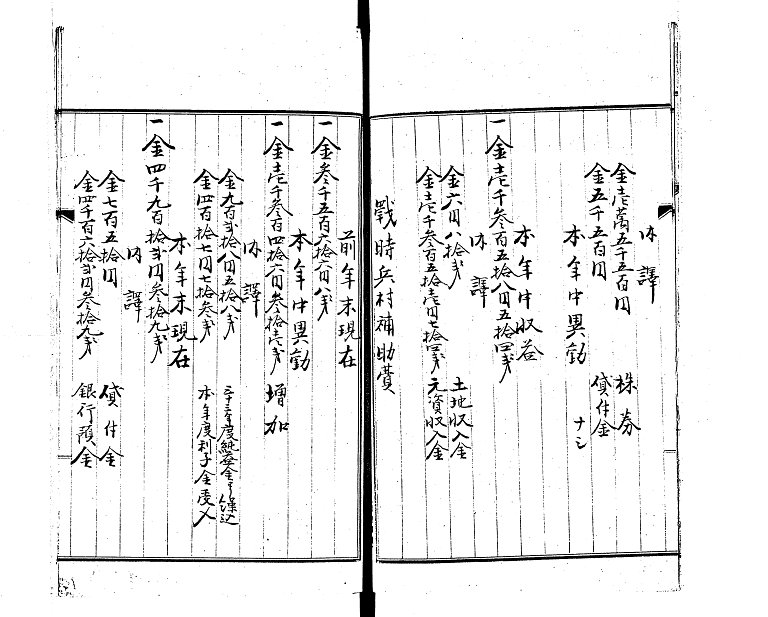 内譯
金壱萬五千五百円 株券
金五千五百円 貸付金
本年中異動 ナシ
本年中収益
一金壱千参百五拾八円五拾四銭
内譯
金六円八拾銭 土地収入金
金壱千参百五拾壱円七拾四銭 元資収入金
戰時兵村補助費
前年末現在
一金参千五百六拾六円八銭
本年中異動
一金壱千参百四拾六円参拾壱銭 増加
内譯
金九百弐拾八円五拾八銭 年度純益金ヨリ繰込
金四百拾七円七拾参銭 本年度利子金受入
本年末現在
一金四千九百拾弐円参拾九銭
内譯
金七百五拾円 貸付金
金四千百六拾弐円参拾九銭 銀行預金